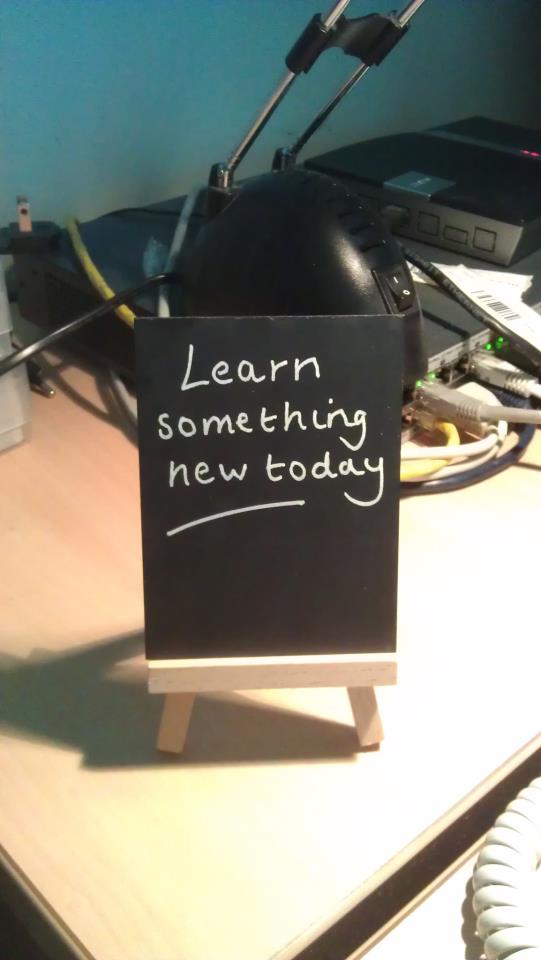 Learn
something
new today